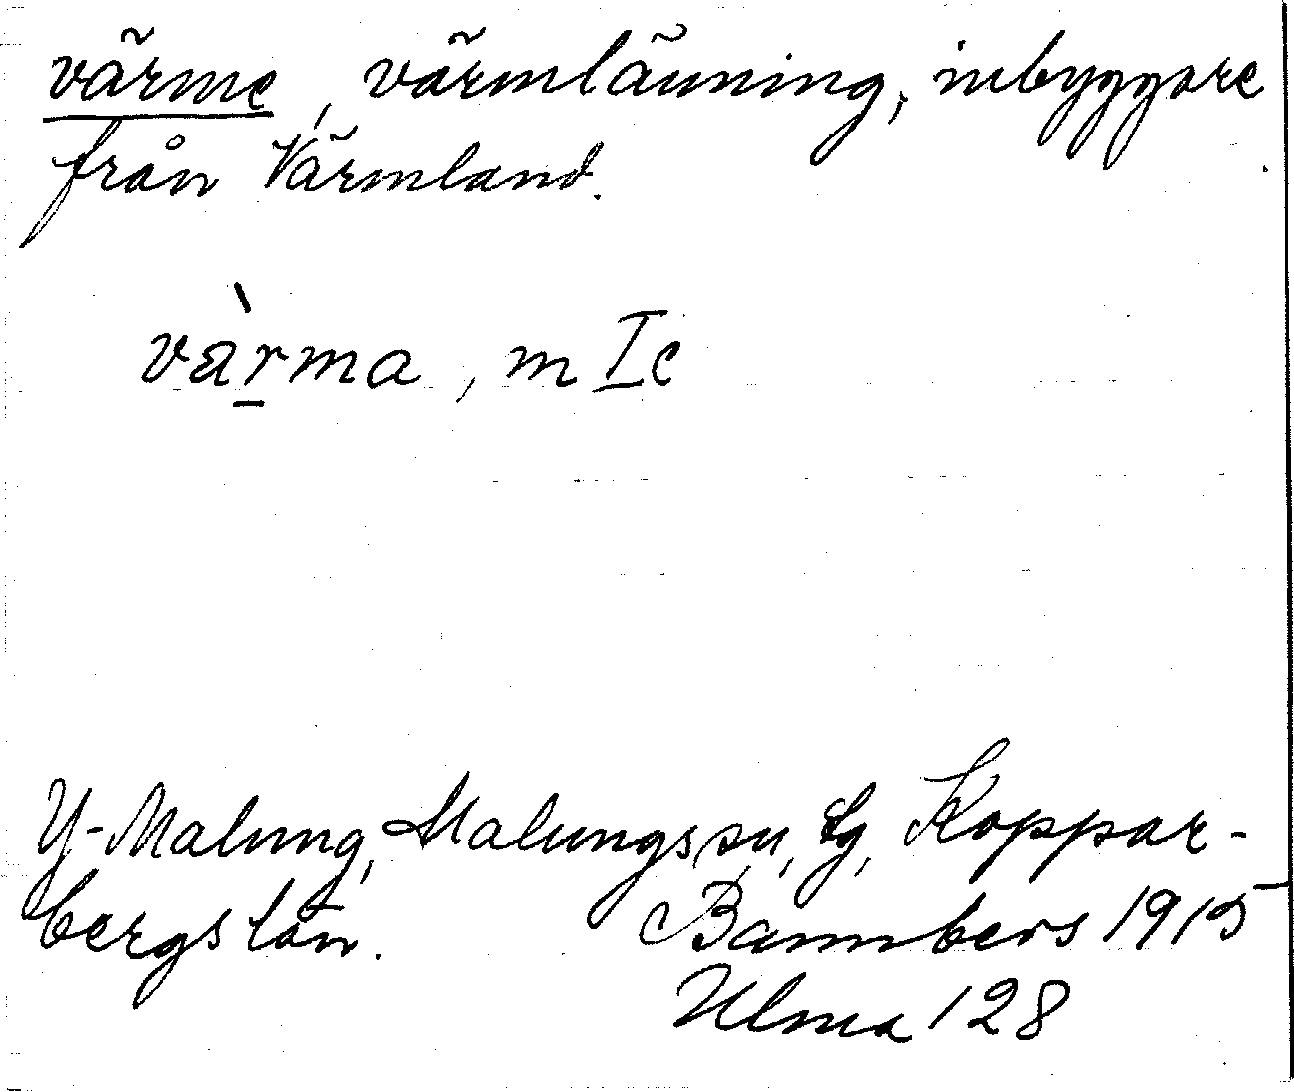 värme, värmlänning, inbyggare
från Värmland.
vàrma, m Ic
Y-Malung, Malungs sn, Lg, Koppar-
bergs län.
Bannbers 1915
Ulma 128